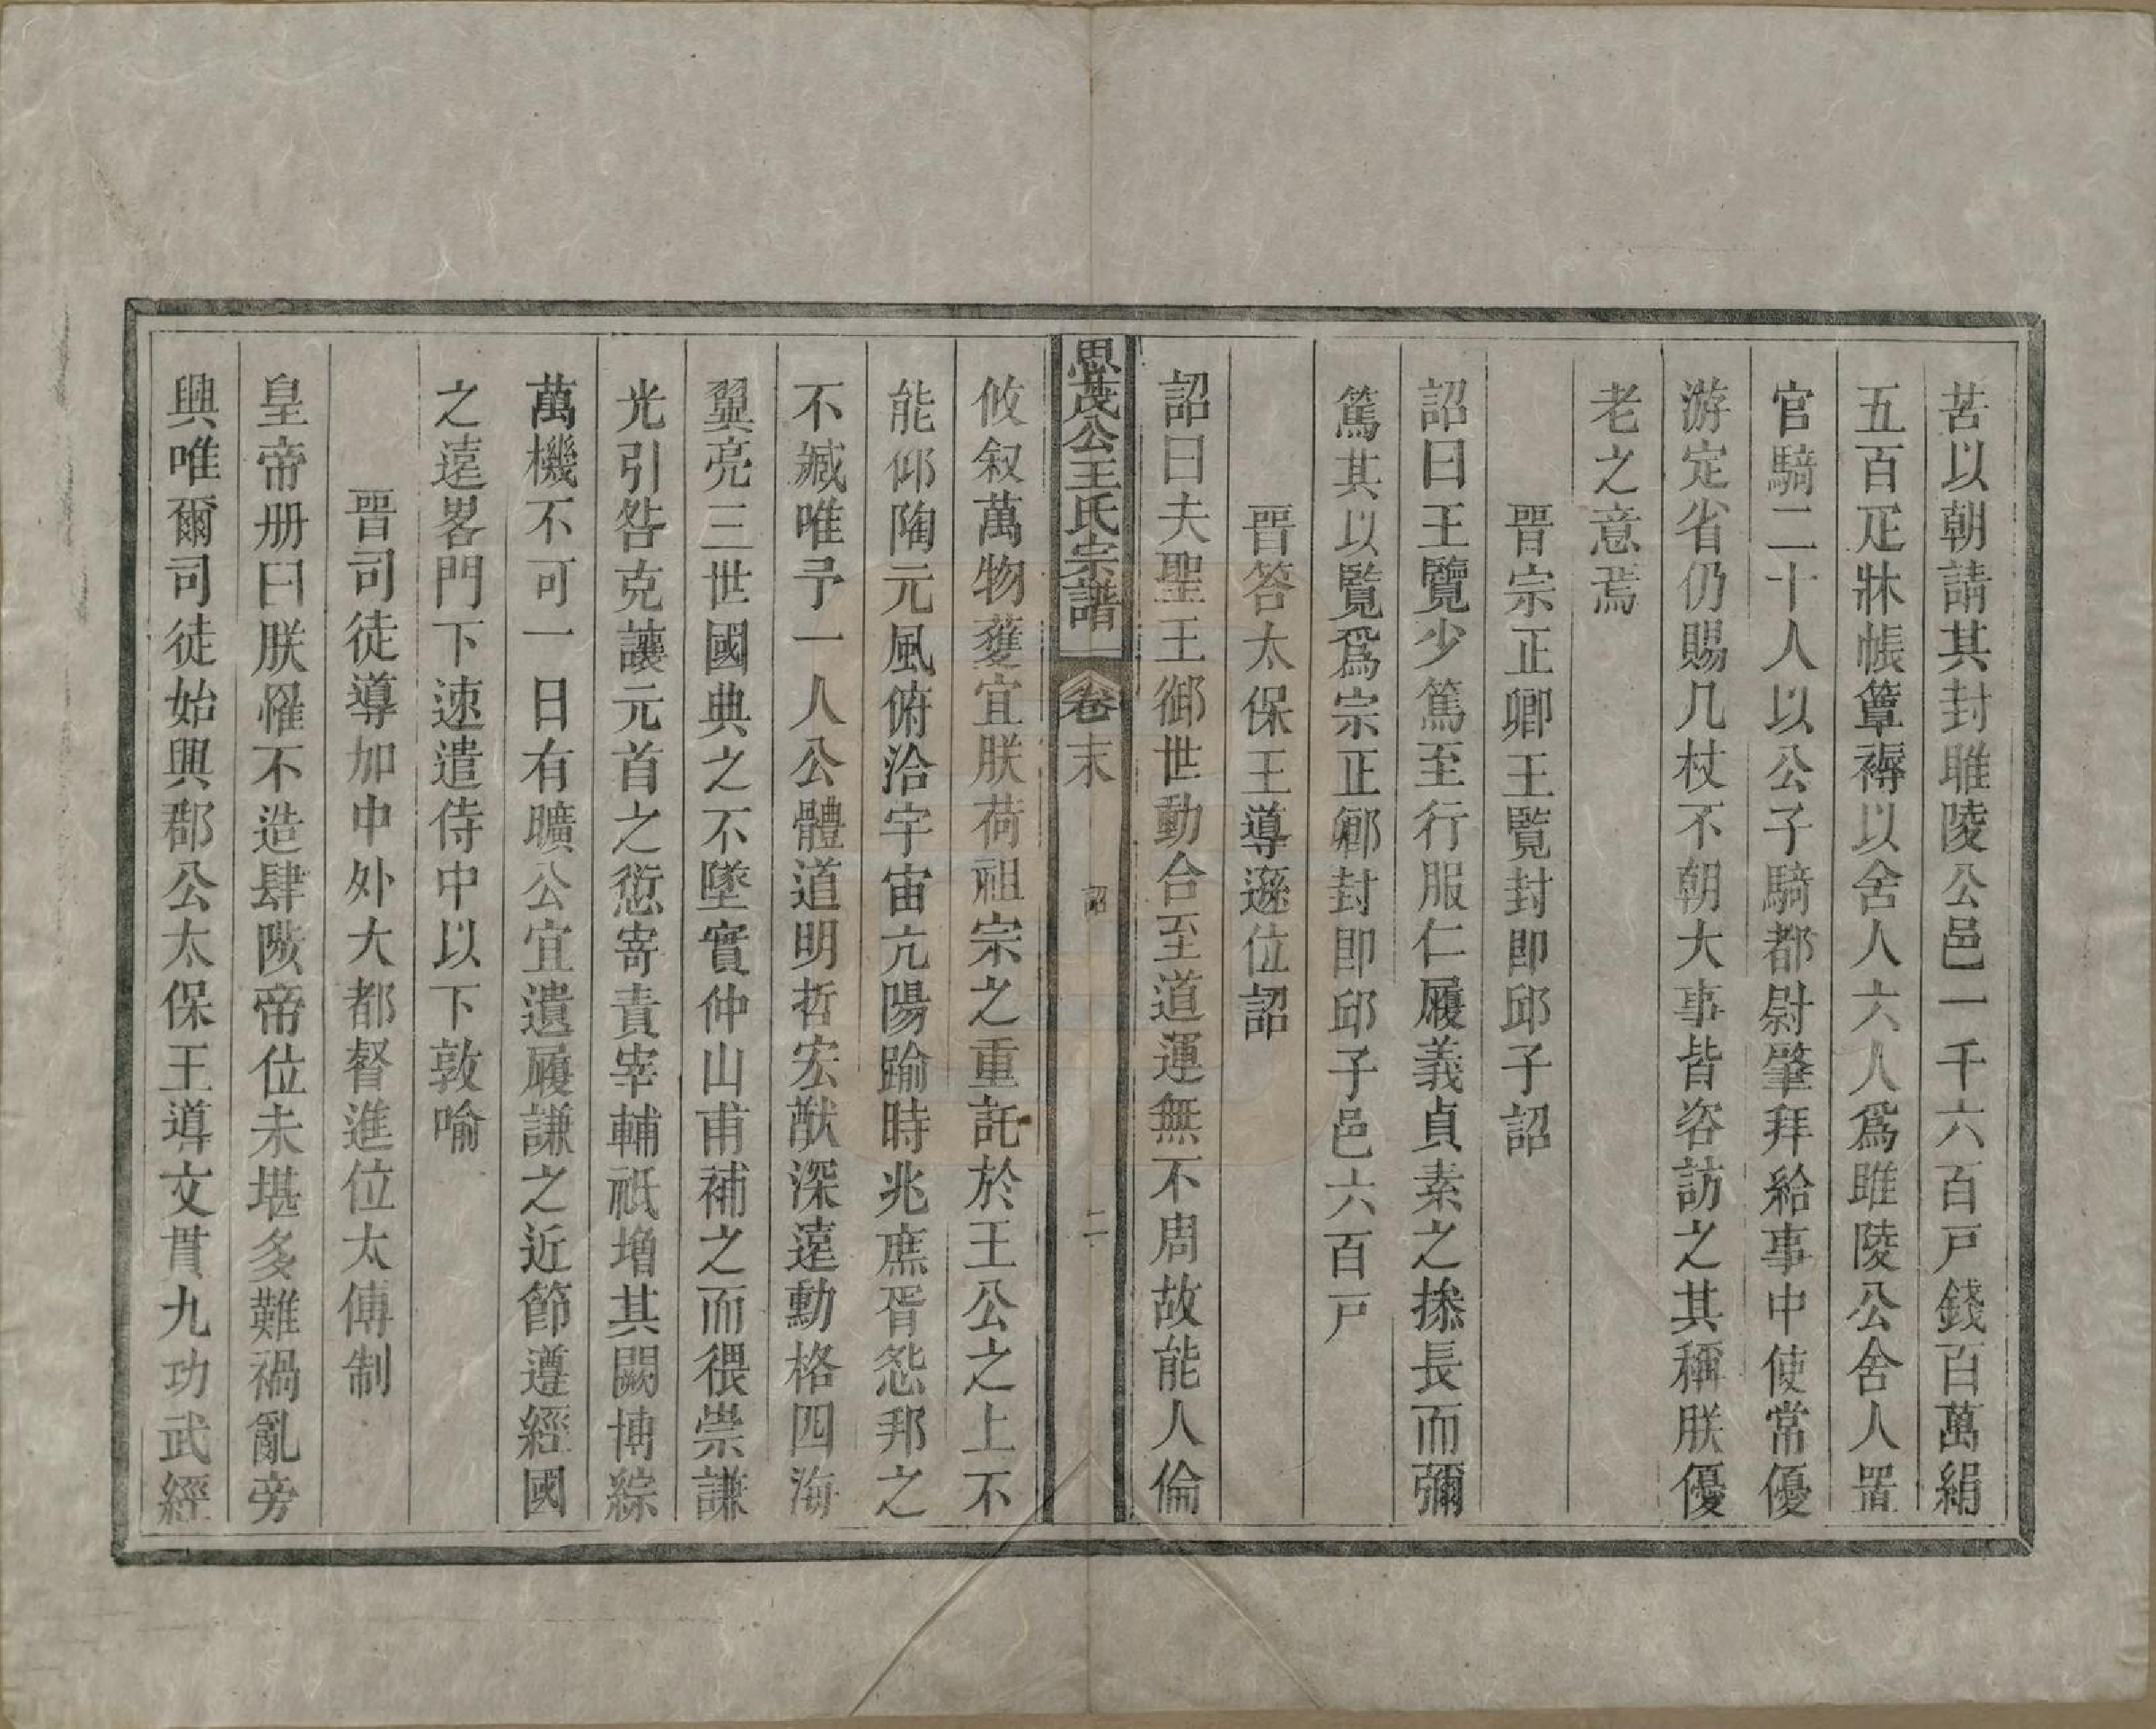 苦以朝請其封雎陵公邑一千六百戸錢百萬絹
五百疋牀帳簟褥以舍人六人爲雎陵公舍人置
官騎二十人以公子騎都尉肇拜給事中使常優
游定省仍賜几杖不朝大事皆咨訪之其稱朕優
老之意焉
晋宗正卿王覽封即邱子詔
詔曰王覽少篤至行服仁履義貞素之操長而彌
篤其以覽爲宗正卿封即邱子邑六百戸
晋答太保王導遜位詔
詔曰夫聖王御世動合至道運無不周故能人倫
思茂公王氏宗譜 卷末 詔 二
攸叙萬物獲宜朕荷祖宗之重託於王公之上不
能仰陶元風俯洽宇宙亢陽踰時兆庶胥怨邦之
不臧唯予一人公體道明哲宏猷深遠勳格四海
翼亮三世國典之不墜實仲山甫補之而猥崇謙
光引咎克讓元首之愆寄責宰輔祇增其闕博綜
萬機不可一日有曠公宜遺履謙之近節遵經國
之遠畧門下速遣侍中以下敦喻
晋司徒導加中外大都督進位太傅制
皇帝册曰朕罹不造肆陟帝位未堪多難禍亂旁
興唯爾司徒始興郡公太保王導文貫九功武經